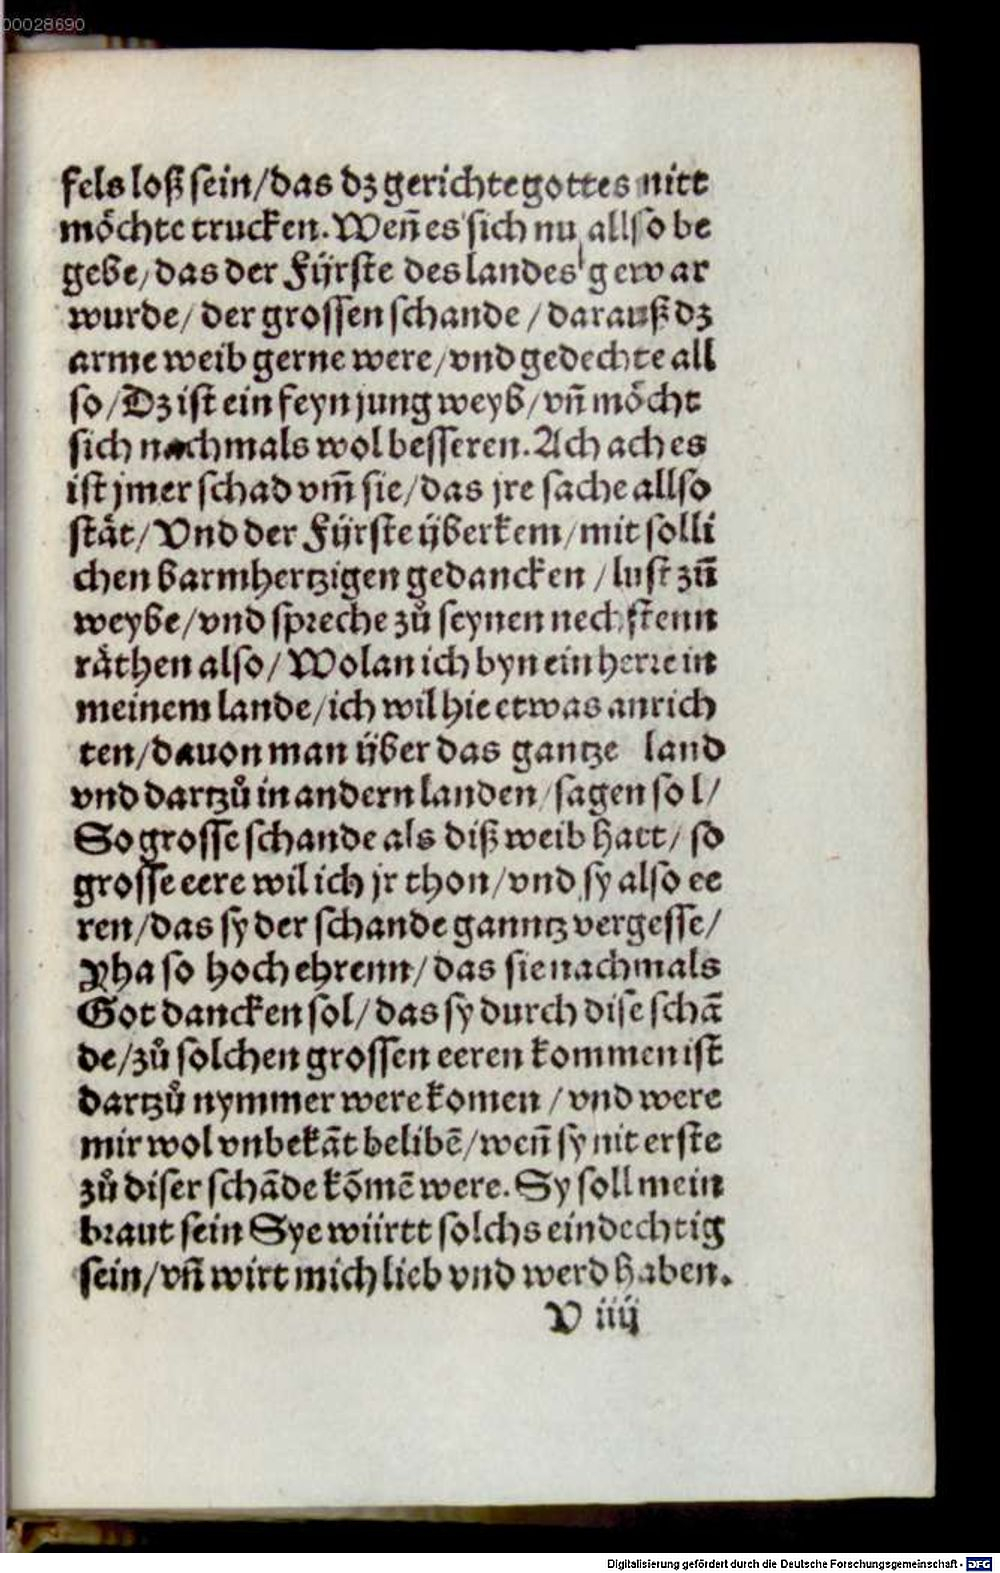 00028690
fels loß sein/das dz gerichte gottes nitt
möchte trucken. Weñ es sich nu allso be
gebe/das der Fÿrste des landes gewar
wurde/ der grossen schande / darauß dz
arme weib gerne were/vnd gedechte all
so/Dz ist ein feyn jung weyb/vñ möcht
sich nachmals wol besseren. Ach ach es
ist jmer schad vm̄ sie/das jre sache allso
stät/ Vnd der Fÿrste ÿberkem/mit solli
chen barmhertzigen gedancken /lust zū
weybe/vnd spreche zů seynen nechstenn
räthen also/ Wolan ich byn ein herre in
meinem lande/ich wil hie etwas anrich
ten/dauon man ÿber das gantze land
vnd dartzů in andern landen/sagen sol/
So grosse schande als diß weib hatt/ so
grosse eere wil ich jr thon/vnd sy also ee
ren/das sy der schande ganntz vergesse/
Yha so hoch ehrenn/das sie nachmals
Got dancken sol/das sy durch dise schā
de/zů solchen grossen eeren kommen ist
dartzů nymmer were komen /vnd were
mir wol vnbekāt belibē/weñ sy nit erste
zů diser schāde kōmē were. Sy soll mein
braut sein Sye württ solchs eindechtig
sein/vñ wirt mich lieb vnd werd haben.
V iiij
Digitalisierung gefördert durch die Deutsche Forschungsgemeinschaft - DFG